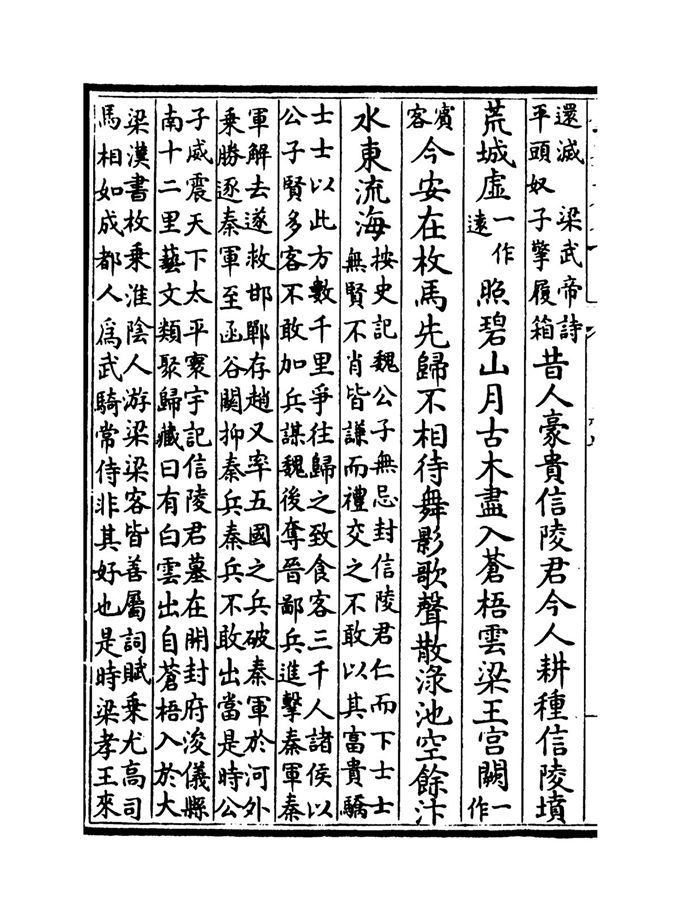 還滅　梁武帝詩平頭奴子擎履箱昔人豪貴信陵君今人耕種信陵墳
荒城虚一作遠照碧山月古木盡入蒼梧雲梁王宮闕一作
賔客今安在枚馬先歸不相待舞影歌聲散渌池空餘汴
水東流海按史記魏公子無忌封信陵君仁而下士士
無賢不肖皆謙而禮交之不敢以其富貴驕
士士以此方數千里爭往歸之致食客三千人諸侯以
公子賢多客不敢加兵謀魏後奪晉鄙兵進擊秦軍秦
軍解去遂救邯鄲存趙又率五國之兵破秦軍於河外
乗勝逐秦軍至函谷關抑秦兵秦兵不敢出當是時公
子威震天下太平寰宇記信陵君墓在開封府浚儀縣
南十二里藝文類聚歸藏曰有白雲出自蒼梧入於大
梁漢書枚乗淮陰人游梁梁客皆善屬詞賦乗尤高司
馬相如成都人爲武騎常侍非其好也是時梁孝王來